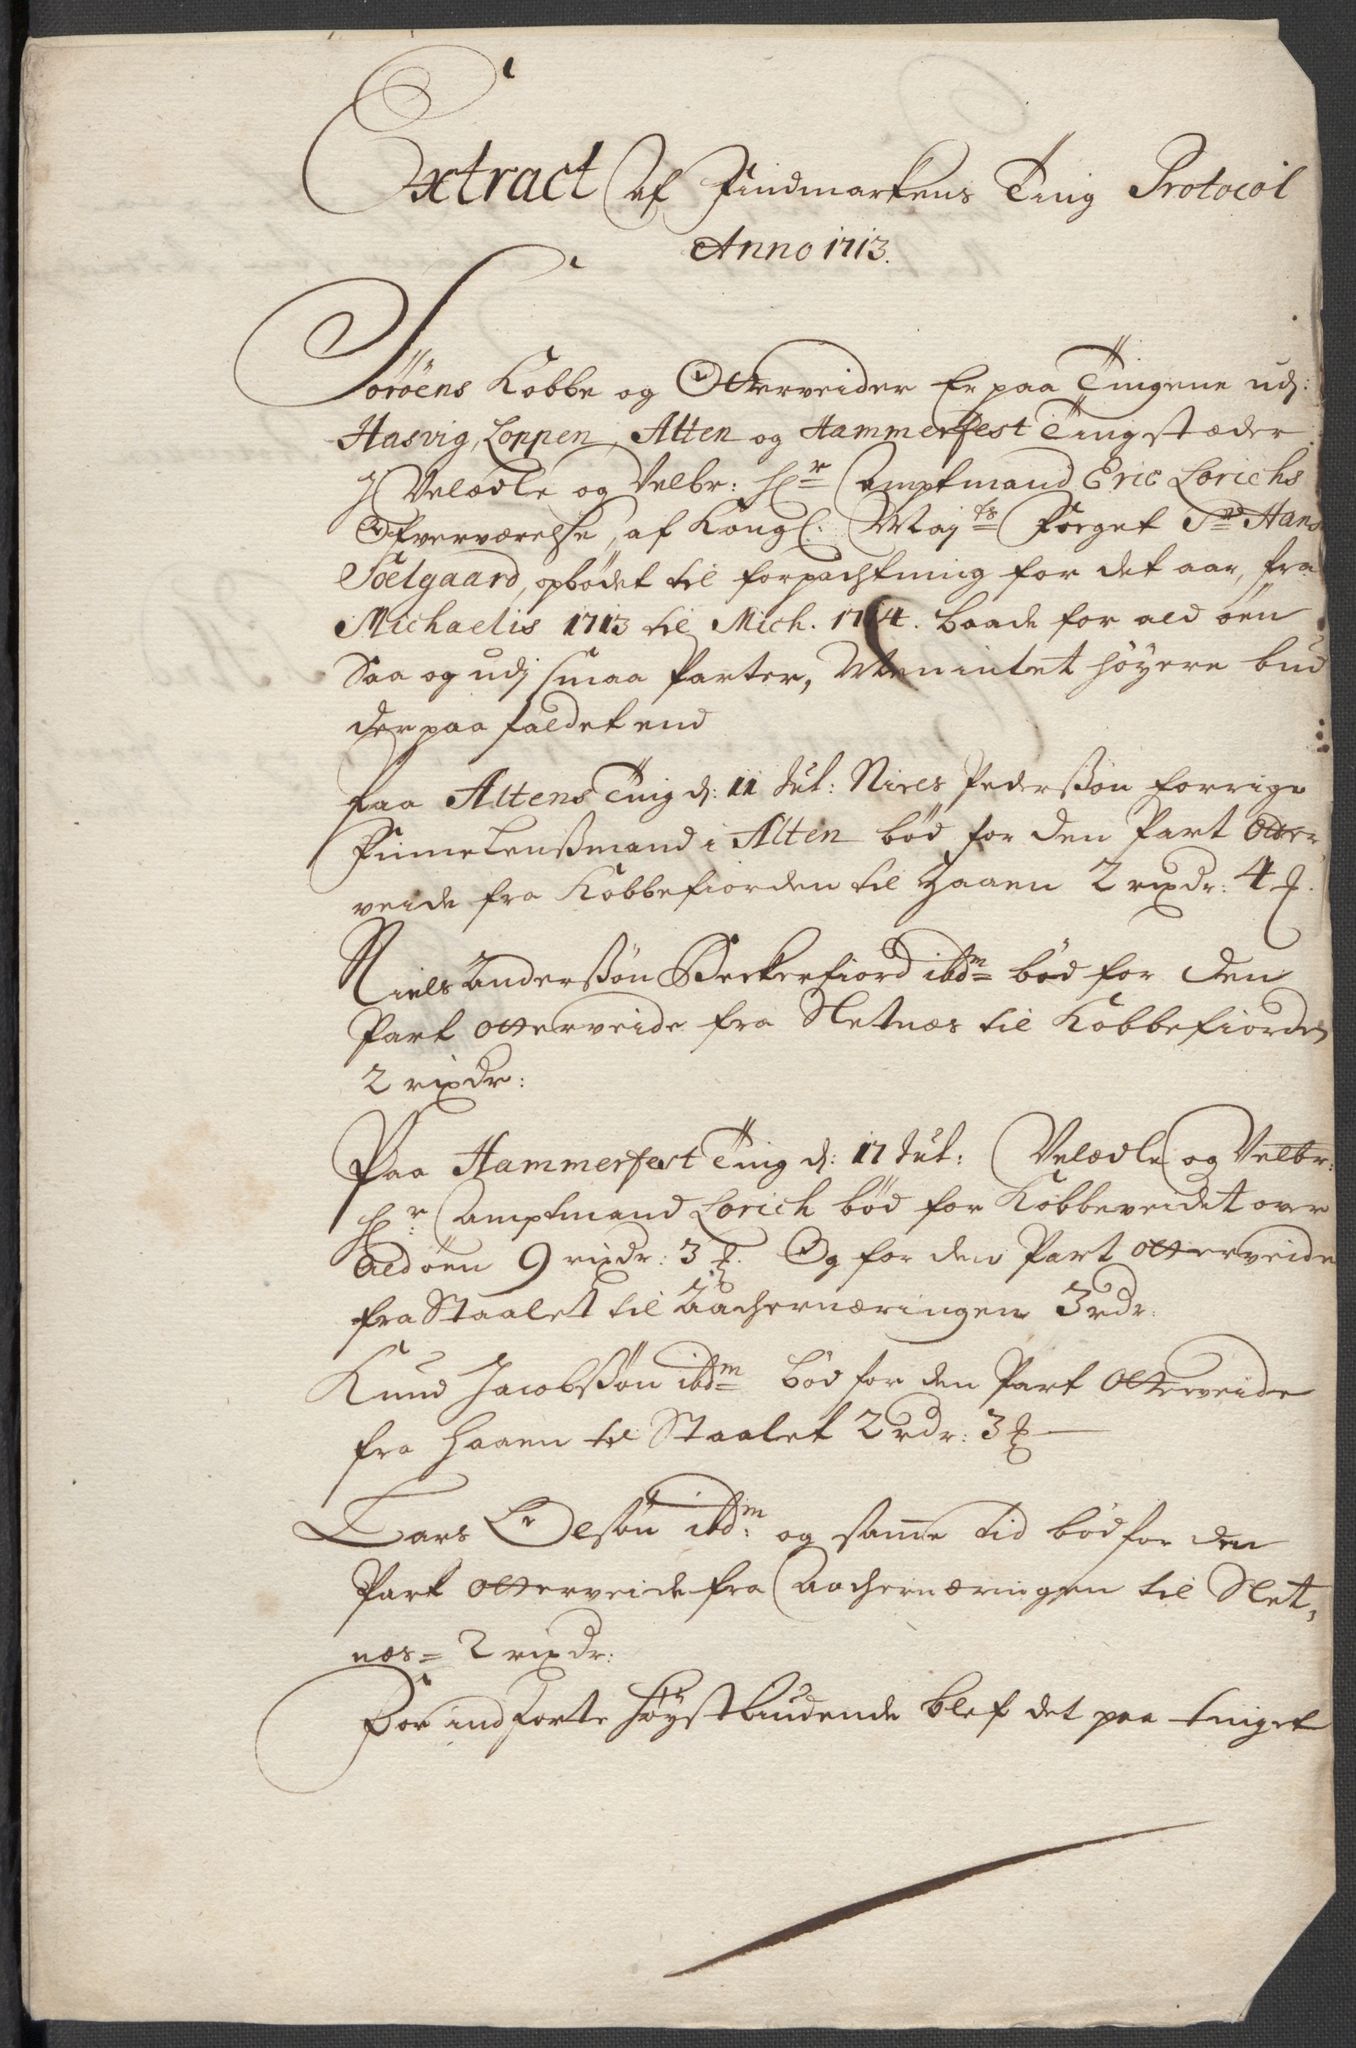 Extract af Findmarkens Ting Protocol
Anno 1713.
Sørøens Kobbe og Otterveider Er paa Tingene udj:
Hasvig, Loppen, Alten og Hammerfest Tingstæder
J Velædle og Velbr: Hr Amptmand Eric Lorichs
Ofverværelse, af Kongl. Mayts Foget Sr Hans
Soelgaard, opbødet til forpachtning for det aar, fra
Michaelis 1713 til Mich. 1714. baade for ald øen
Saa og udj smaa Parter, Men intet høyere bud
der paa faldet end
Paa Altens Ting d: 11 Jul: Niels Pederssøn forrige
Finne Lenssmand i Alten bød for den Part Otter,
veide fra Kobbefiorden til Haaen 2 rixdr: 4
Niels Anderssøn Beckerfiord ibdm bød for den
Part otterveide fra Sletnæs til Kobbefiorden
2 rixdr:
Paa Hammerfest Ting d: 17 Jul: Velædle og Velbr:
Hr Amptmand Lorich bød for Kobbeveidet over
ald øen 9 rixdr: 3 Og for den Part otterveide
fra Staalet til Aachernæringen 3 rdr:
Knud Jacobssøn ibdm bød for den Part Otterveide
fra Haaen til Staalet 2 rdr: 3
Lars Olsøn ibdm: og samme tid bød for den
Part otterveide fra Aachernæringen til Slet,
næs = 2 rixdr:
For indførte høystbiudende blef det paa tinget